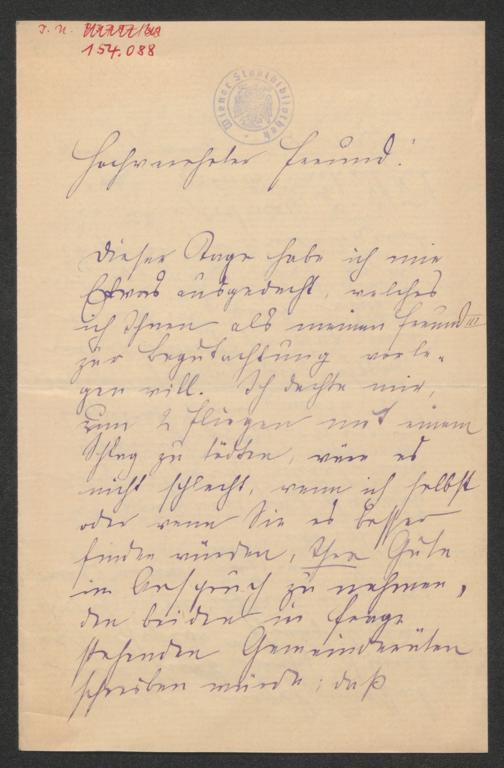 I. N.
154.088
Wiener Stadtbibliothek
Hochverehrter Freund!
Dieser Tage habe ich mir
Etwas ausgedacht, welches
ich Ihnen als meinen Freund
zur Begutachtung vorle-
gen will. Ich dachte mir,
um 2 Fliegen mit einem
Schlag zu tödten, wäre es
nicht schlecht, wenn ich selbst
oder wenn Sie es besser
finden würden, Ihre Güte
in Anspruch zu nehmen,
den beiden in Frage
stehenden Gemeinderäten
schreiben würde; daß